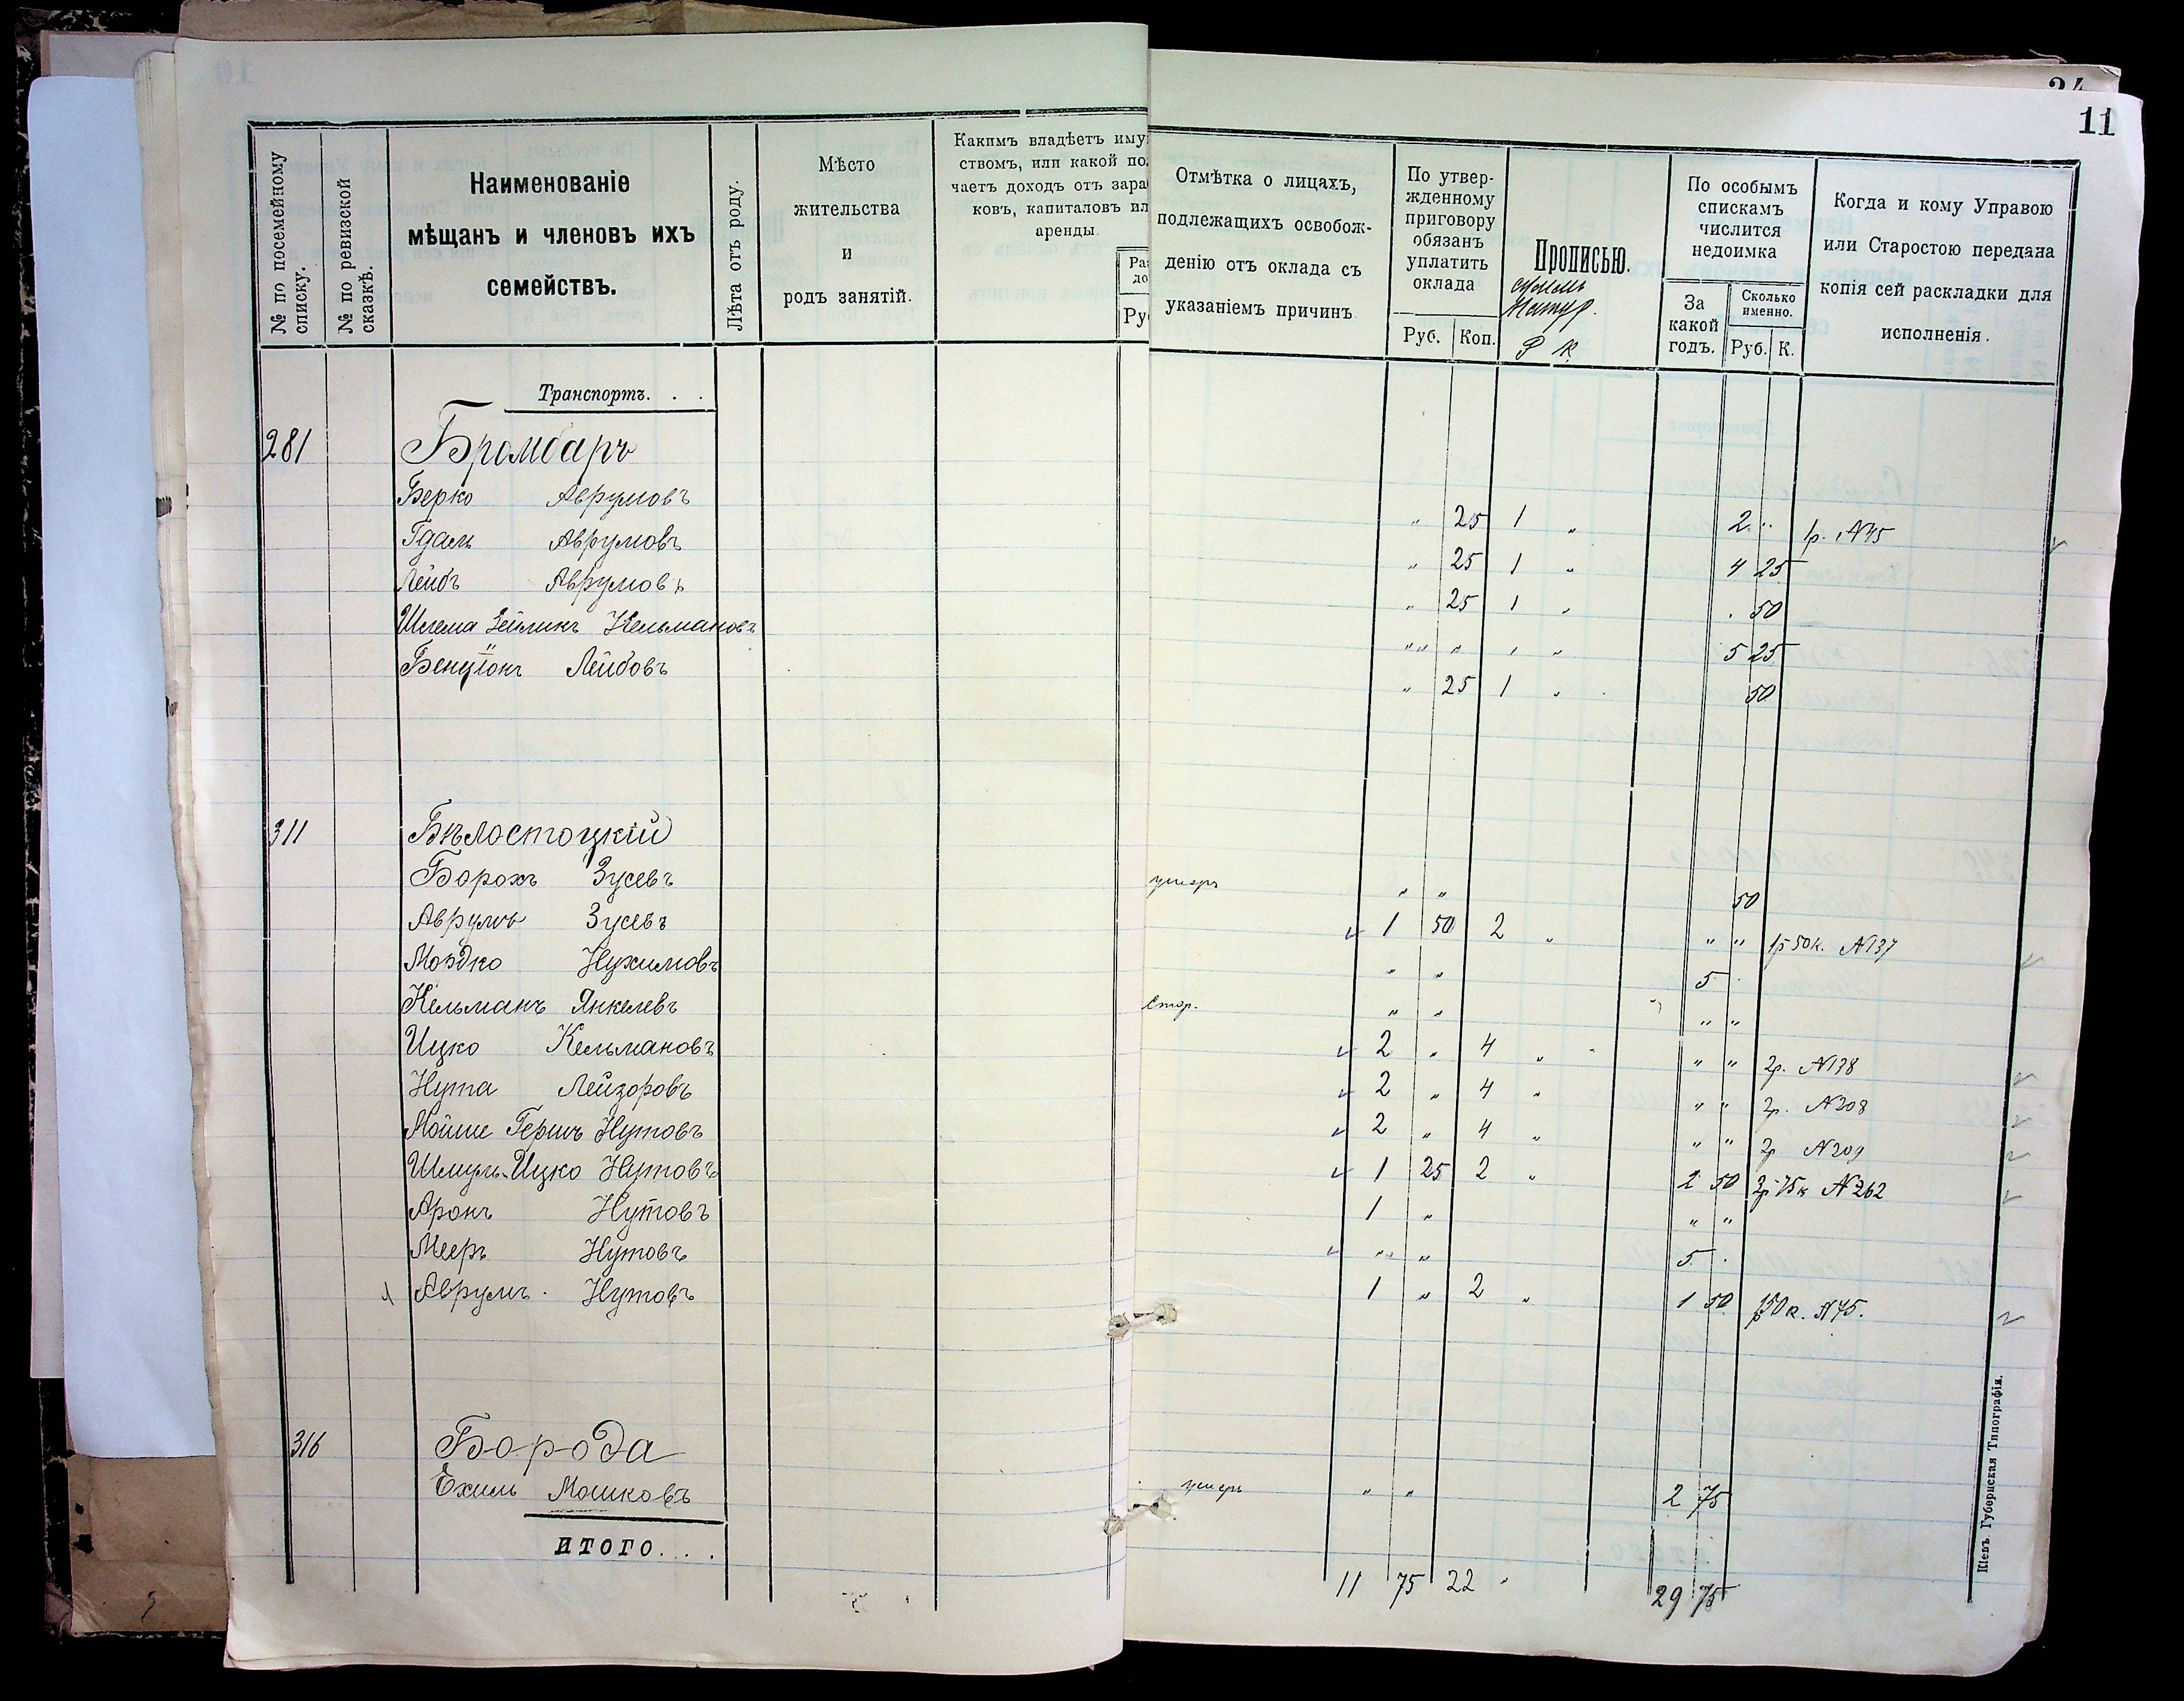 11
№ по посемейному списку.
№ по ревизской сказкѣ.
Наименованіе
мѣщанъ и членовъ ихъ
семействъ.
Лѣта отъ роду.
Мѣсто
жительства
и
родъ занятій.
Какимъ владѣетъ иму
ствомъ, или какой по
чаетъ доходъ отъ зара
ковъ, капиталовъ ил
аренды
Ру
Отмѣтка о лицахъ,
подлежащихъ освобож-
денію отъ оклада съ
указаніемъ причинъ
По утвер-
жденному
приговору
обязанъ
уплатить
оклада
Руб. Коп.
Прописью.
Р К
По особымъ
спискамъ
числится
недоимка
За
какой
годъ.
Сколько
именно.
Руб. К.
Когда и кому Управою
или Старостою передана
копія сей раскладки для
исполненія.
Транспортъ. . .
281 Бромбаръ
Берко Аврумовъ „ 25 1 „ 2 „ 1р. №45
Гдаль Аврумовъ „ 25 1 „ 4 25
Лейбъ Аврумовъ „ 25 1 „ . 50
Шлема Зейликъ Кельмановъ „ „ „ 1 „ 5 25
Бенціонъ Лейбовъ „ 25 1 „ 50
311 Бѣлостоцкій
Борохъ Зусевъ умеръ „ „ 50
Аврумъ Зусевъ 1 50 2 „ „ „ 1р 50к. №137
Мордко Нухимовъ „ „ 5 .
Кельманъ Янкелевъ Стар. „ „ „ „
Ицко Кельмановъ 2 „ 4 „ „ „ 2р. №138
Нута Лейзоровъ 2 „ 4 „ „ „ 2р. №208
Мойше Гершъ Нутовъ 2 „ 4 „ „ „ 2р №209
Шмуль-Ицко Нутовъ 1 25 2 „ 2 50 3р 75к №262
Аронъ Нутовъ 1 „ „ „
Мееръ Нутовъ „ „ 5 .
Аврумъ Нутовъ 1 „ 2 „ 1 50 №75.
316 Борода
Ехиль Мошковъ умеръ „ „ 2 75
ИТОГО. . . .
11 75 22 „ 29 75
Кіевъ Губернская Типографія.